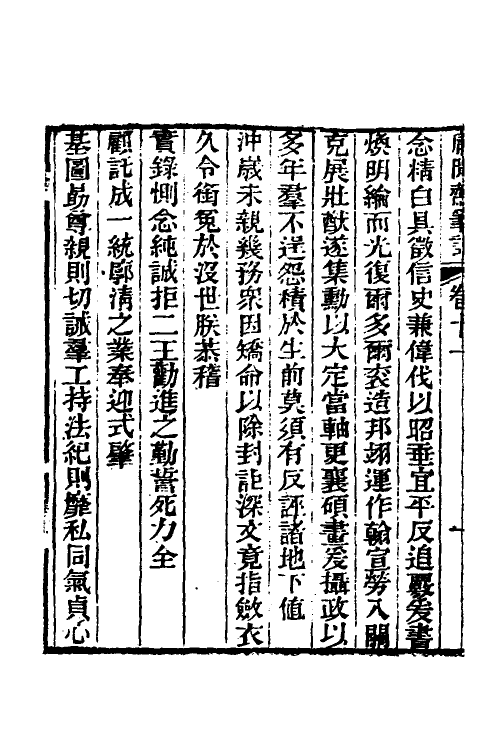 念精白具徵信史兼偉伐以昭垂宜平反追覈爰書
煥明綸而光復爾多爾袞造邦翊運作翰宣勞入關
克展壯猷遂集勳以大定當軸更襄碩畫爰攝政以
多年羣不逞怨積於生前莫須有反誣諸地下值
沖歲未親幾務衆因矯命以除封詎深文竟指斂衣
久令銜冤於沒世朕恭稽
實錄惻念純誠拒二王勸進之勤誓死力全
顧託成一統廓清之業奉迎式肇
基圖勗尊親則切誡羣工持法紀則靡私同氣貞心